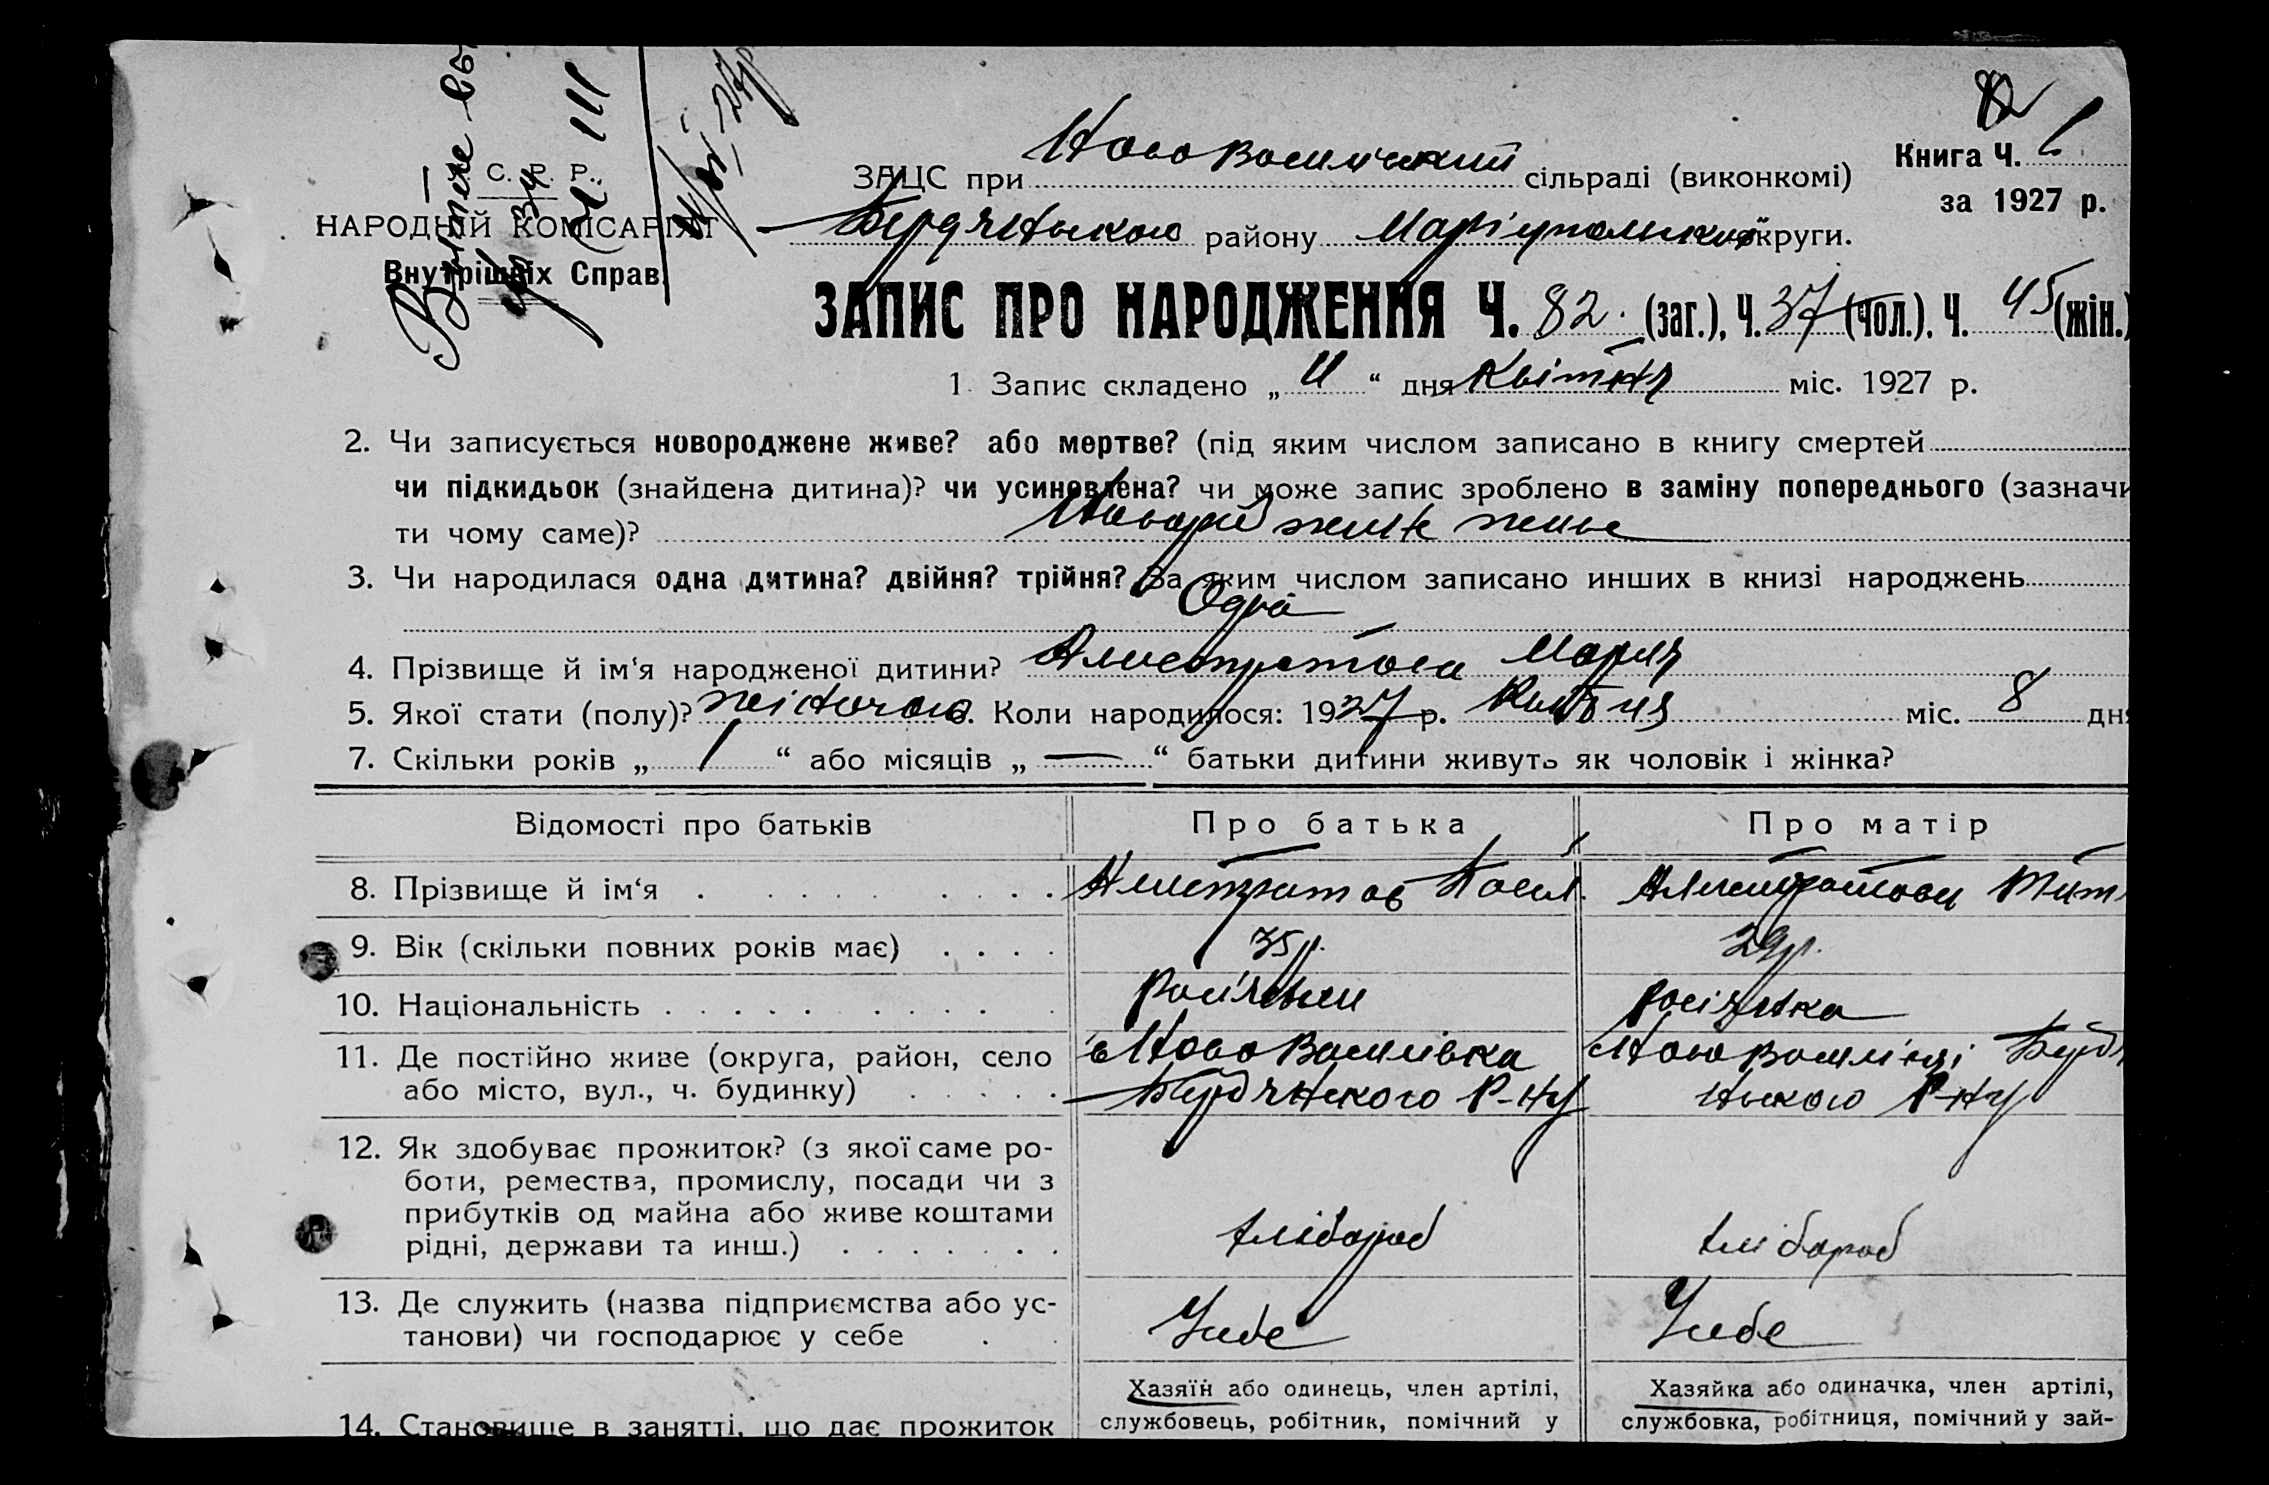 Книга Ч. 1
за 1927 р.
С. Р. Р.
НАРОДНІЙ КОМІСАРІЯТ
Внутрішніх Справ.
ЗАЦС при Ново Василівський сільраді (виконкомі)
Бердянського району Маріупольської округи.
ЗАПИС ПРО НАРОДЖЕННЯ Ч. 82. (заг.), Ч. 37 (чол.), Ч. 45 (жін.)
1. Запис складено „ 11 “ дня Квітня міс. 1927 р.
2. Чи записується новороджене живе? або мертве? (під яким числом записано в книгу смертей
чи підкидьок (знайдена дитина)? чи усиновлена? чи може запис зроблено в заміну попереднього (зазначи
ти чому саме)? живе
3. Чи народилася одна дитина? двійня? трійня? За яким числом записано инших в книзі народжень
Одна
4. Прізвище й ім‘я народженої дитини? Алистратова Мария
5. Якої стати (полу)? жіночого 6. Коли народилося: 1927 р. Квітня міс. 8 дня
7. Скільки років „ 1 “ або місяців „ — “ батьки дитини живуть як чоловік і жінка?
Відомості про батьків Про батька Про матір
8. Прізвище й ім‘я Алистратов Алистратова
9. Вік (скільки повних років має) 35 р. 29 р.
10. Національність росіянка
11. Де постійно живе (округа, район, село
або місто, вул., ч. будинку)
с Ново Василівка
Бердянского Р-ну
12. Як здобуває прожиток? (з якої саме ро-
боти, ремества, промислу, посади чи з
прибутків од майна або живе коштами
рідні, держави та инш.)
хлібороб хлібороб
13. Де служить (назва підприємства або ус-
танови) чи господарює у себе
У себе У себе
14. Становище в занятті, що дає прожиток
Хазяїн або одинець, член артілі,
службовець, робітник, помічний у
Хазяйка або одиначка, член артілі,
службовка, робітниця, помічний у зай-